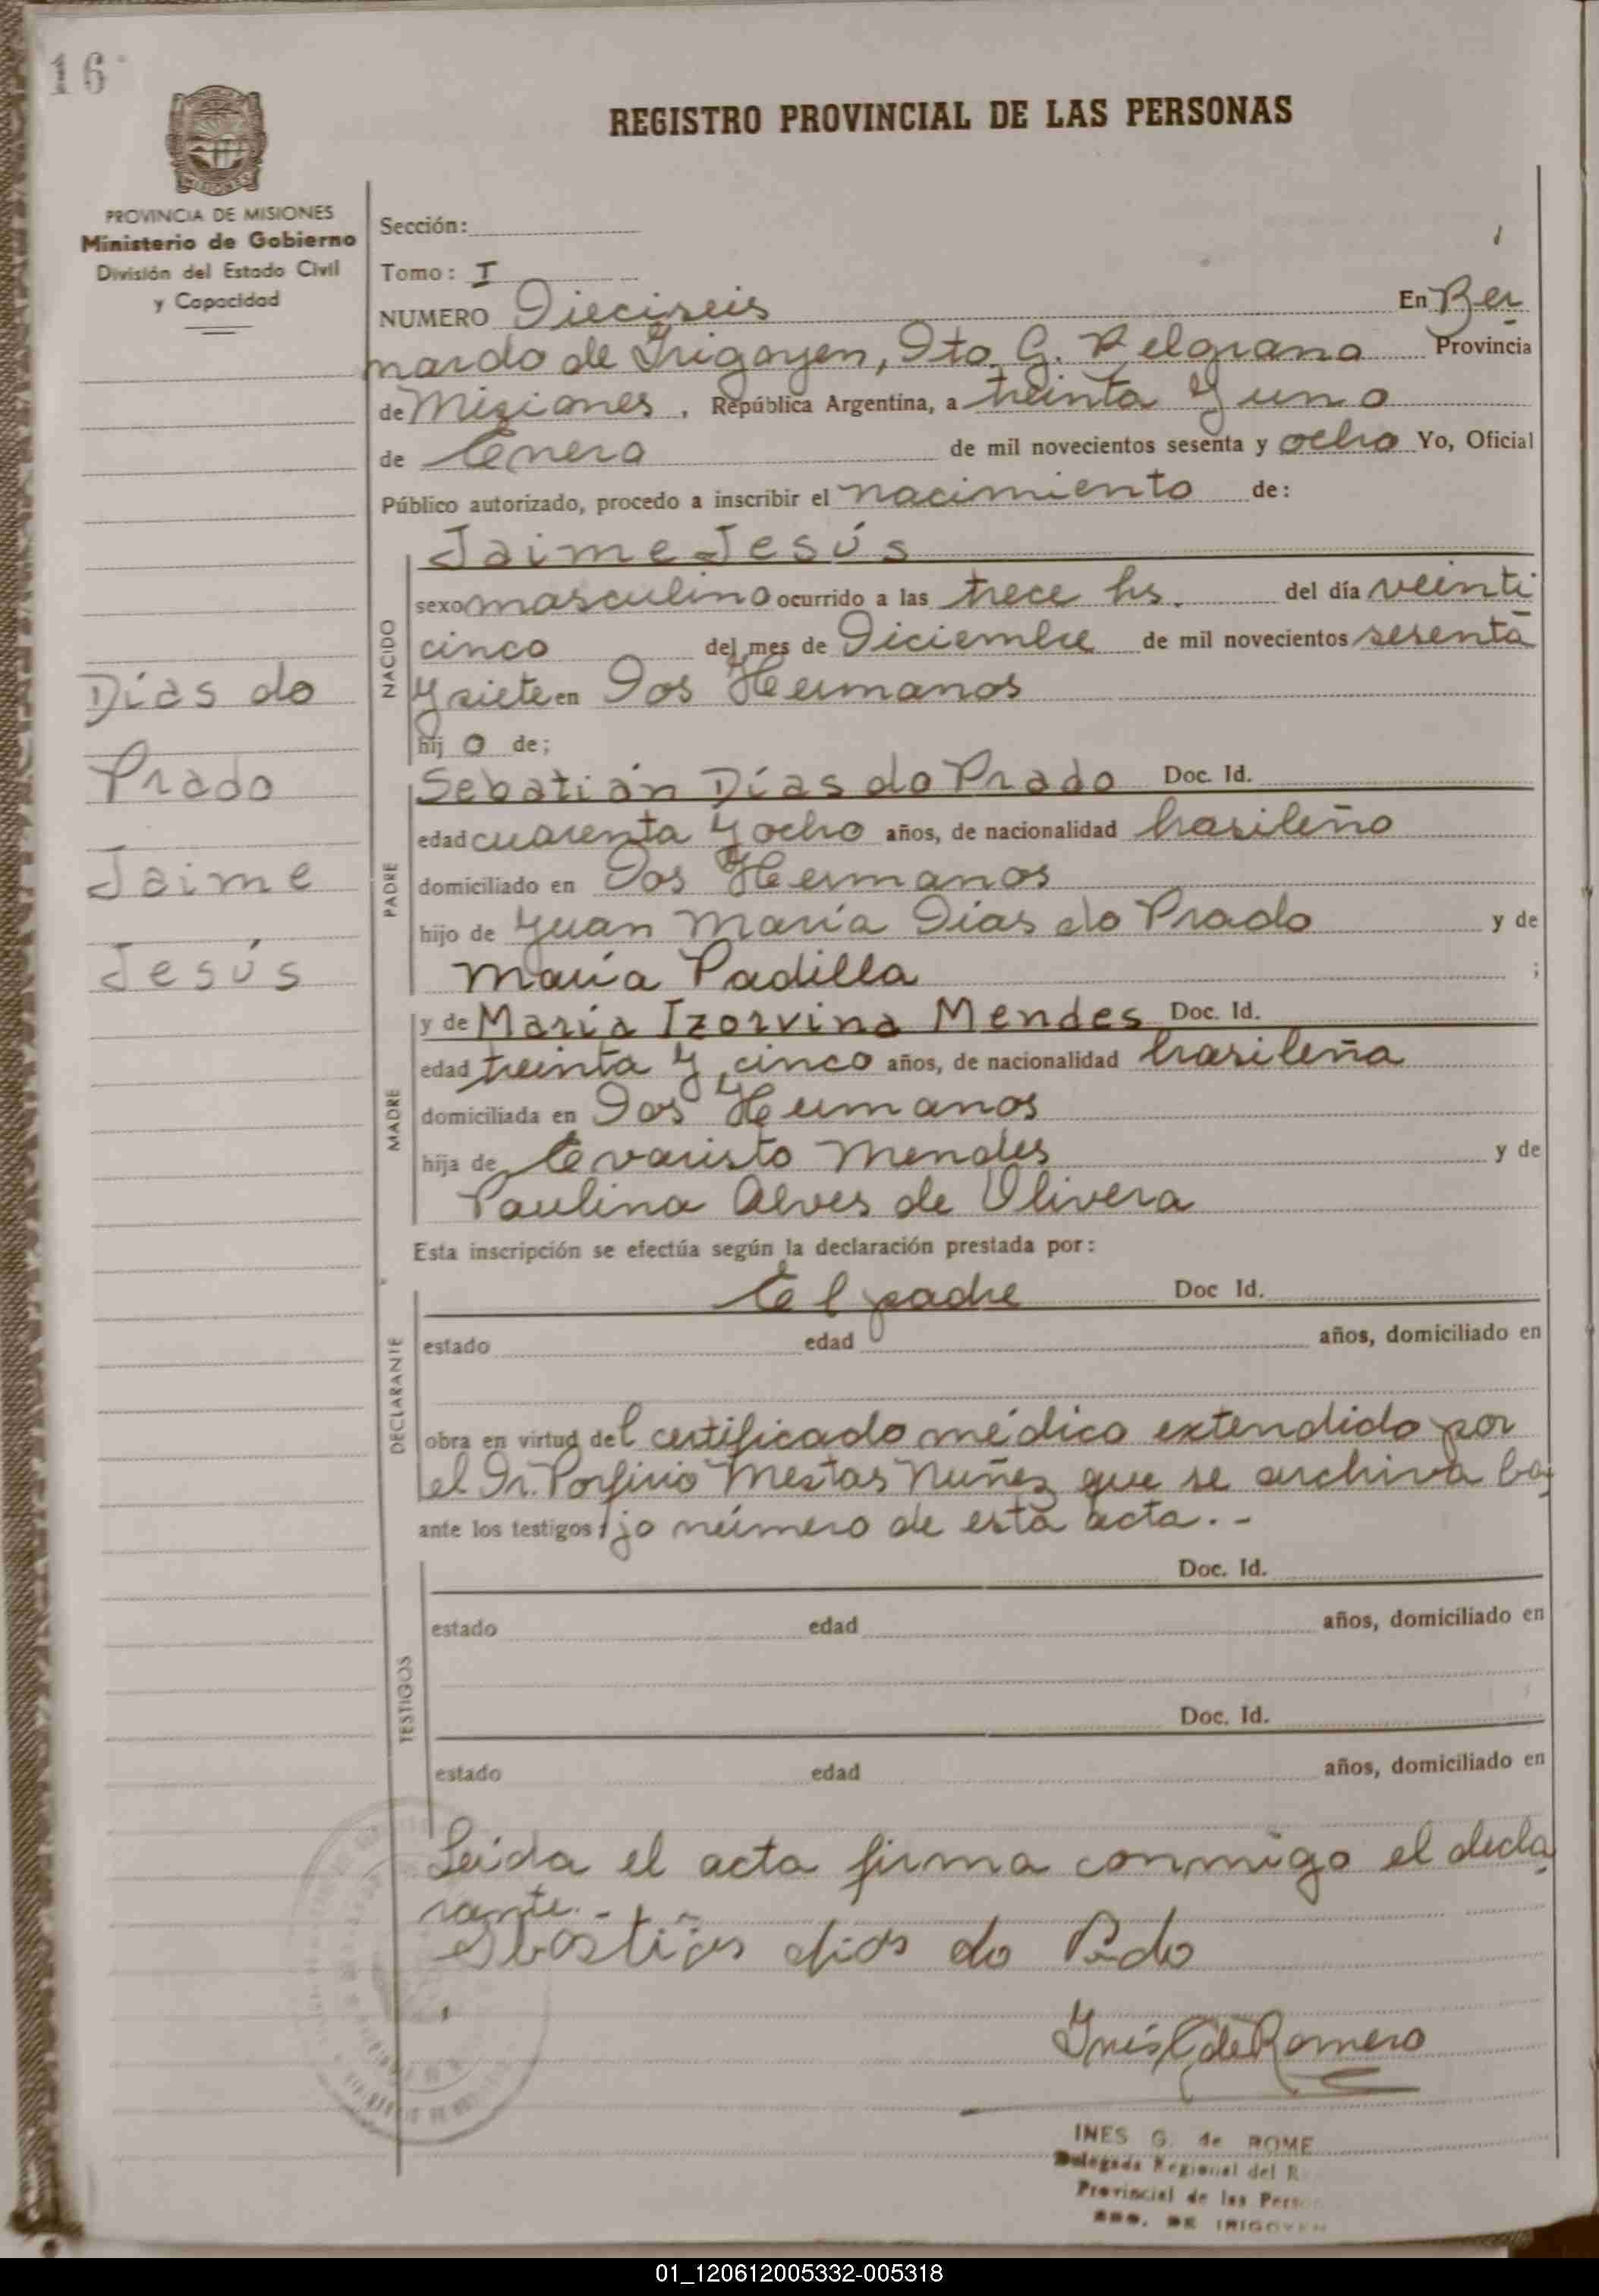 16
REGISTRO PROVINCIAL DE LAS PERSONAS
PROVINCIA DE MISIONES
Ministerio de Gobierno
División del Estado Civil
y Capacidad
Días do
Prado
Jaime
Jesús
Sección:
Tomo: I
NUMERO Dieciseis En Ber
nardo de Irigoyen, Dto G. Belgrano Provincia
de Misiones, República Argentina, a treinta y uno
de Enero de mil novecientos sesenta y ocho Yo, Oficial
Público autorizado, procedo a inscribir el nacimiento de:
Jaime Jesús
NACIDO
sexo masculino ocurrido a las trece hs. del día veinti
cinco del mes de Diciembre de mil novecientos sesenta
y siete en Dos Hermanos
hij o de;
PADRE
Sebatián Días do Prado Doc. Id.
edad cuarenta y ocho años, de nacionalidad brasileño
domiciliado en Dos Hermanos
hijo de Juan María Dias do Prado y de
María Padilla ;
MADRE
y de María Izorvina Mendes Doc. Id.
edad treinta y cinco años, de nacionalidad brasileña
domiciliada en Dos Hermanos
hija de Evaristo Mendes y de
Paulina Alves de Olivera
Esta inscripción se efectúa según la declaración prestada por:
DECLARANTE
El padre Doc Id.
estado edad años, domiciliado en
obra en virtud del certificado médico extendido por
el Dr. Porfirio Mestas Nuñez que se archiva ba
ante los testigos: jo número de esta acta.-
TESTIGOS
Doc. Id.
estado edad años, domiciliado en
Doc. Id.
estado edad años, domiciliado en
Leída el acta firma conmigo el decla
rante.-
dias do Prado
Inés G de Romero
INES G. de ROME
Delegada Regional del R
Provincial de las Person
BDO. DE IRIGOYEN
01_120612005332-005318